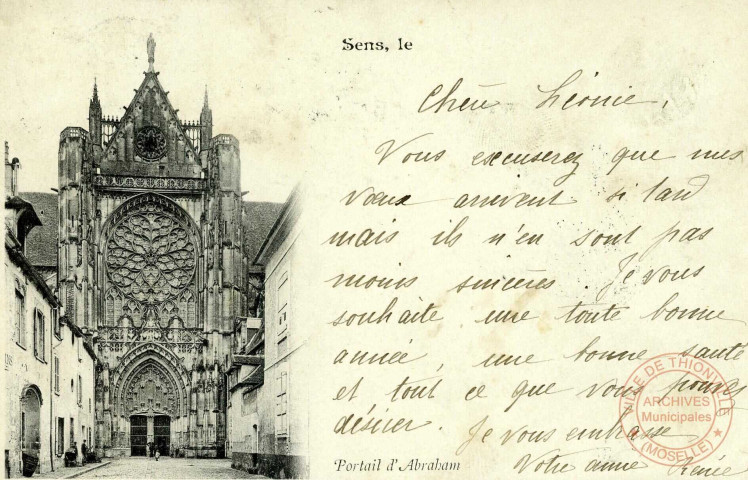 Sens, le
Chère Léonie,
Vous excuserez que mes
vœux arrivent si tard
mais ils n'en sont pas
moins sincères. Je vous
souhaite une toute bonne
année, une bonne santé
et tout ce que vous pouvez
désirer. Je vous embrasse
Votre amie Renée
Portail d'Abraham
VILLE DE THIONVILLE
ARCHIVES
Municipales
(MOSELLE)